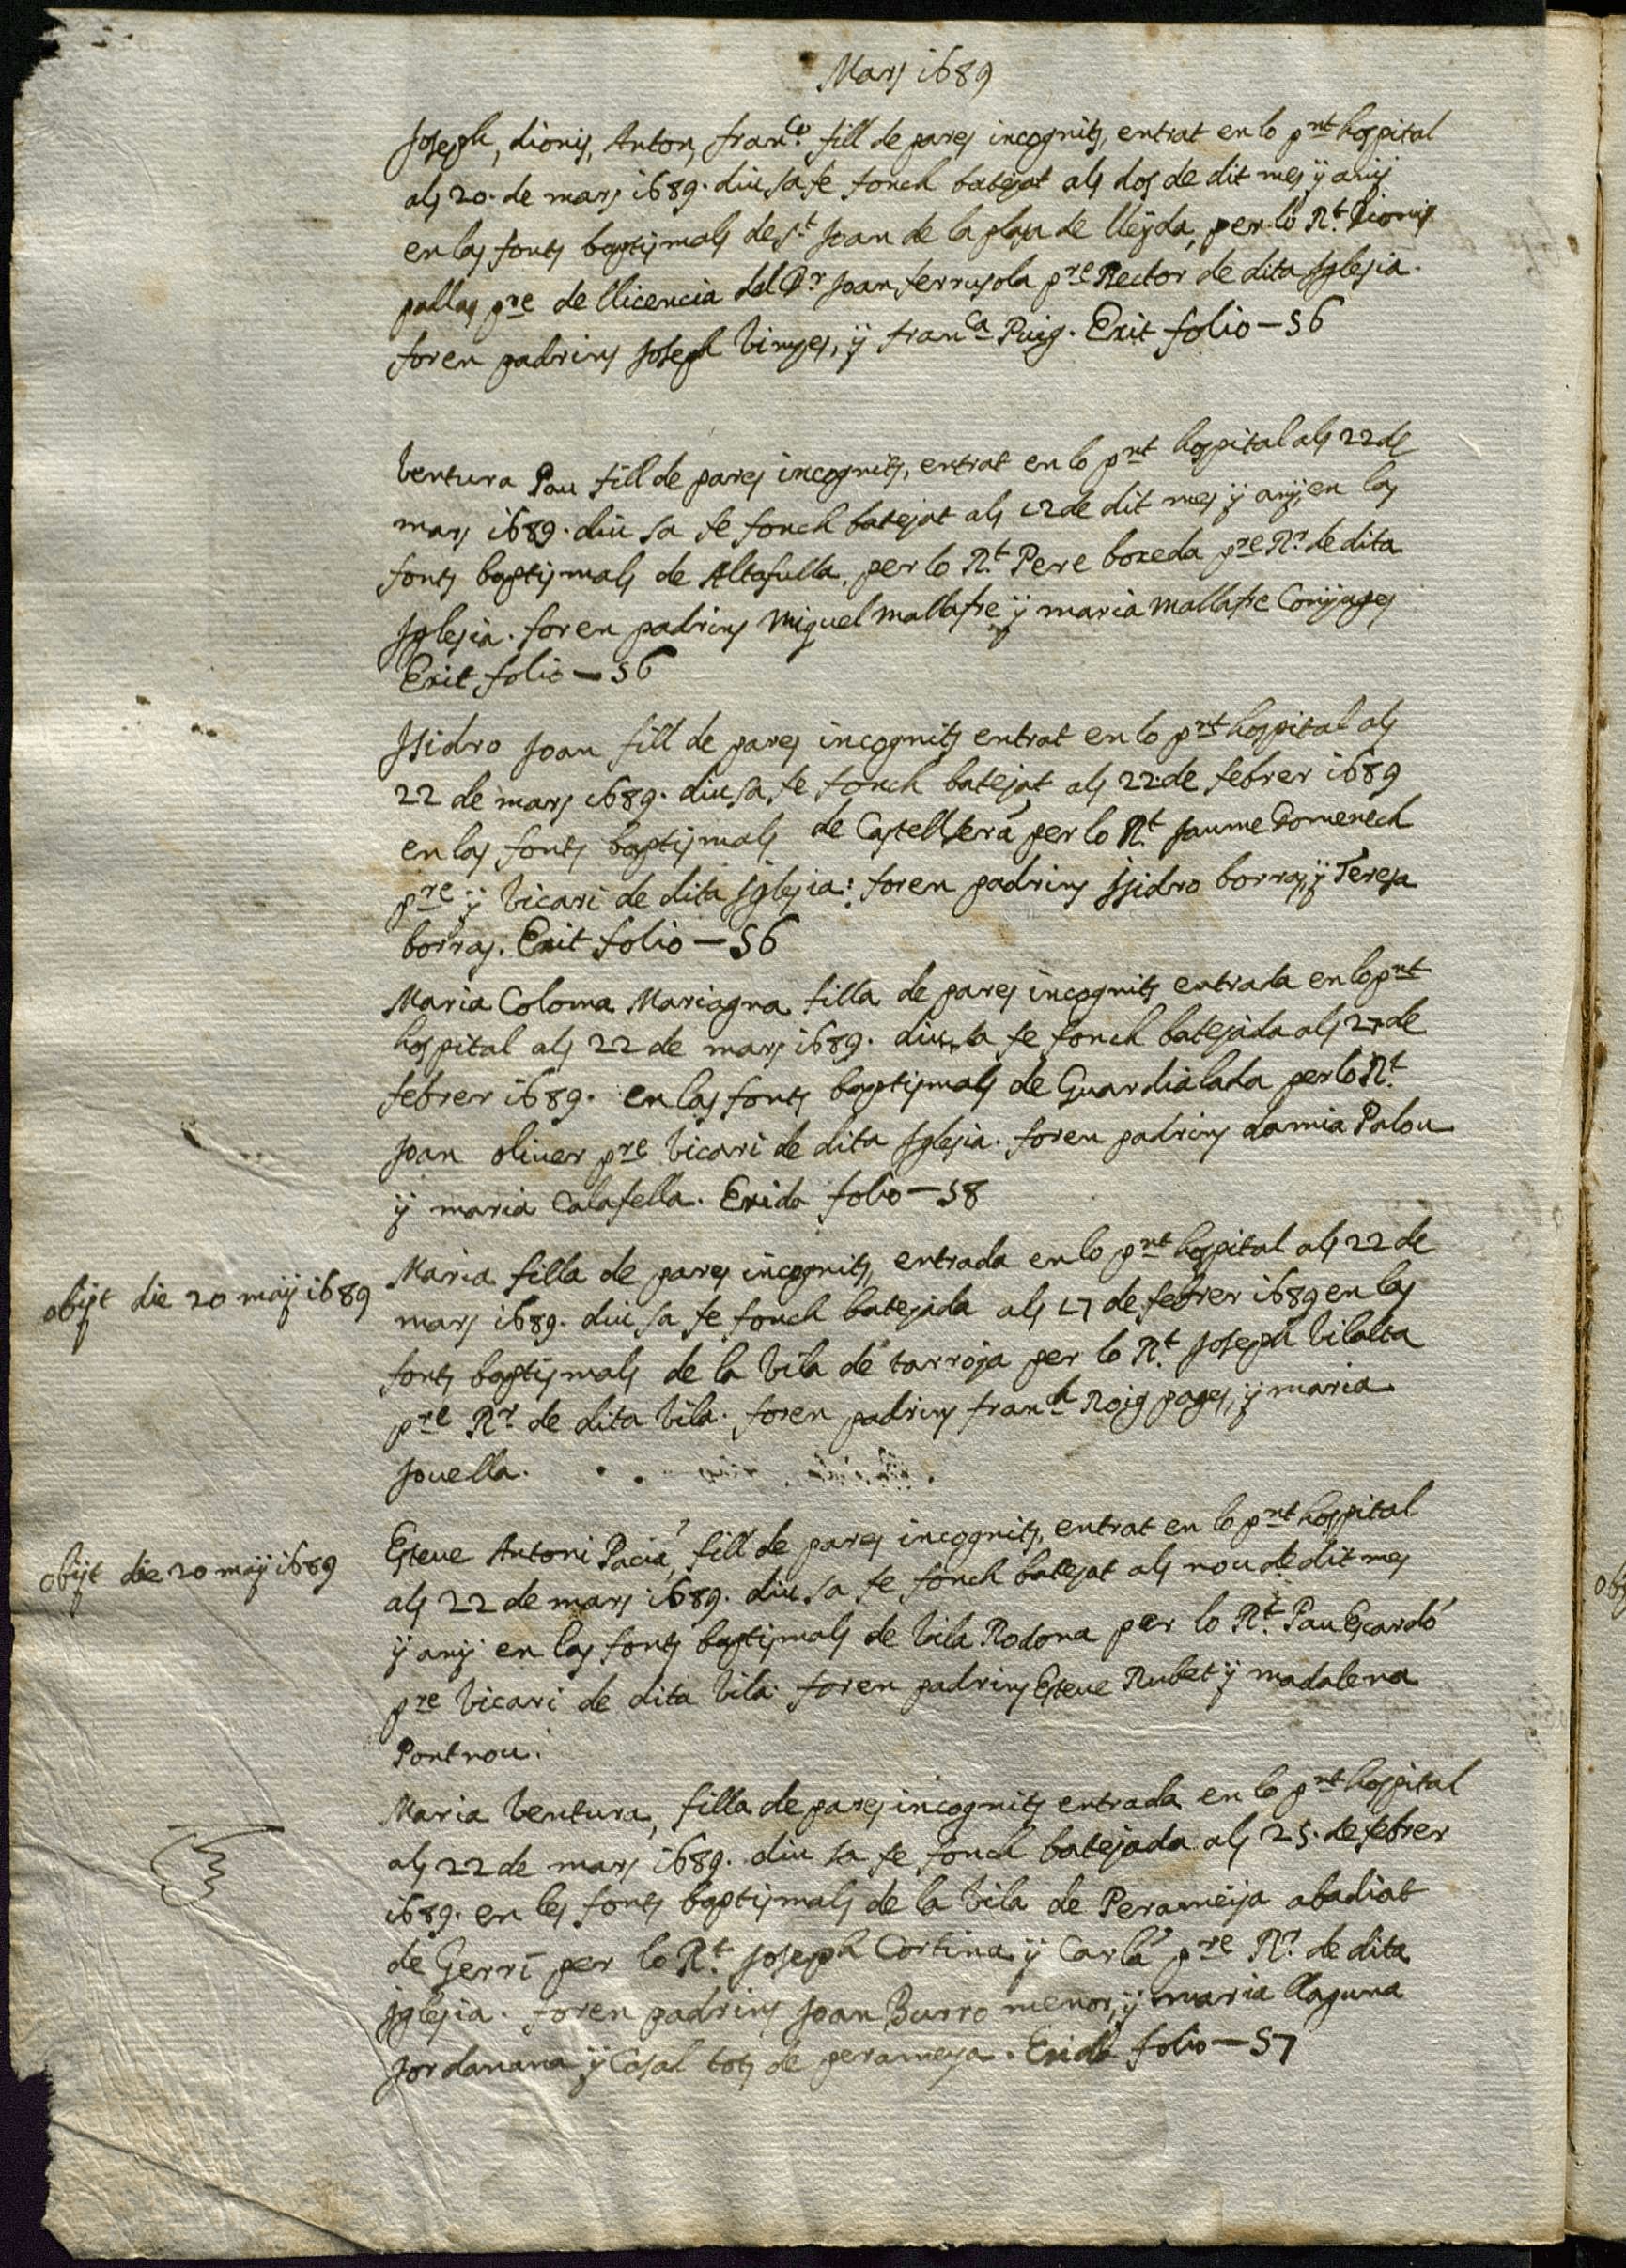 Mars 1689
Joseph, dionis, Anton, fran.co fill de pares incognits, entrat en lo pnt hospital
als 20. de mars 1689. diu sa fe fonch batejat als dos de dit mes ÿ anÿ
en las fonts baptismals de s.t Joan de la plasa de lleÿda, per lo R.t Dionis
pallas pre de llicencia del Dr Joan ferrusola pre Rector de dita Iglesia.
foren padrins Joseph Vinyes, ÿ fran.ca Puig. Exit folio — 56
Ventura Pau fill de pares incognits, entrat en lo pnt hospital als 22 de
mars 1689. diu sa fe fonch batejat als 12 de dit mes ÿ anÿ, en las
fonts baptismals de Altafulla, per lo R.t Pere boxeda pre R.r de dita
Iglesia. foren padrins Miquel Mallafre ÿ maria Mallafre Conjuges
Exit folio — 56
Isidro Joan fill de pares incognits entrat en lo pnt hospital als
22 de mars 1689. diu sa fe fonch batejat als 22 de febrer 1689
en las fonts baptismals de Castellserá per lo R.t Jaume Domenech
pre ÿ Vicari de dita Iglesia: foren padrins Isidro borras, ÿ Teresa
borras. Exit folio — 56
Maria Coloma Mariagna filla de pares incognits entrada en lo pnt
hospital als 22 de mars 1689. diu sa fe fonch batejada als 27 de
febrer 1689. en las fonts baptismals de Guardialada per lo R.t
Joan oliver pre Vicari de dita Iglesia. foren padrins damia Palou
ÿ maria Calafella. Exida folio — 58
obijt die 20 maij 1689
Maria filla de pares incognits, entrada en lo pnt hospital als 22 de
mars 1689. diu sa fe fonch batejada als 17 de febrer 1689 en las
fonts baptismals de la Vila de tarroja per lo R.t Joseph Vilalta
pre R.r de dita Vila. foren padrins fran.ch Roig pages, ÿ maria
Jouella.
obijt die 20 maij 1689
Esteve Antoni Paciá, fill de pares incognits, entrat en lo pnt hospital
als 22 de mars 1689. diu sa fe fonch batejat als nou de dit mes
ÿ anÿ en las fonts baptismals de Vila Rodona per lo R.t Pau Escardó
pre Vicari de dita Vila. foren padrins Esteve Rubet ÿ madalena
Pontnou.
Maria Ventura, filla de pares incognits entrada en lo pnt hospital
als 22 de mars 1689. diu sa fe fonch batejada als 25. de febrer
1689. en les fonts baptismals de la Vila de Perameija abadiat
de Gerri per lo R.t Joseph Cortina ÿ Carlá pre R.r de dita
iglesia. foren padrins Joan Burro menor, ÿ maria llaguna
Jordanana ÿ Casal tots de perameija. Exida folio — 57